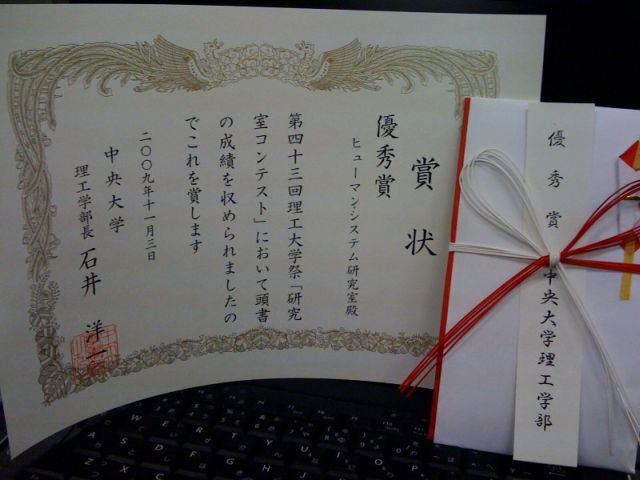 賞状
優秀賞
ヒューマンシステム研究室殿
第四十三回理工大学祭「研究
室コンテスト」において頭書
の成績を収められましたの
でこれを賞します
二〇〇九年十一月三日
中央大学
理工学部長 石井 洋一
優秀賞
中央大学理工学部
Q W E R T Y U
A S D
Z X C